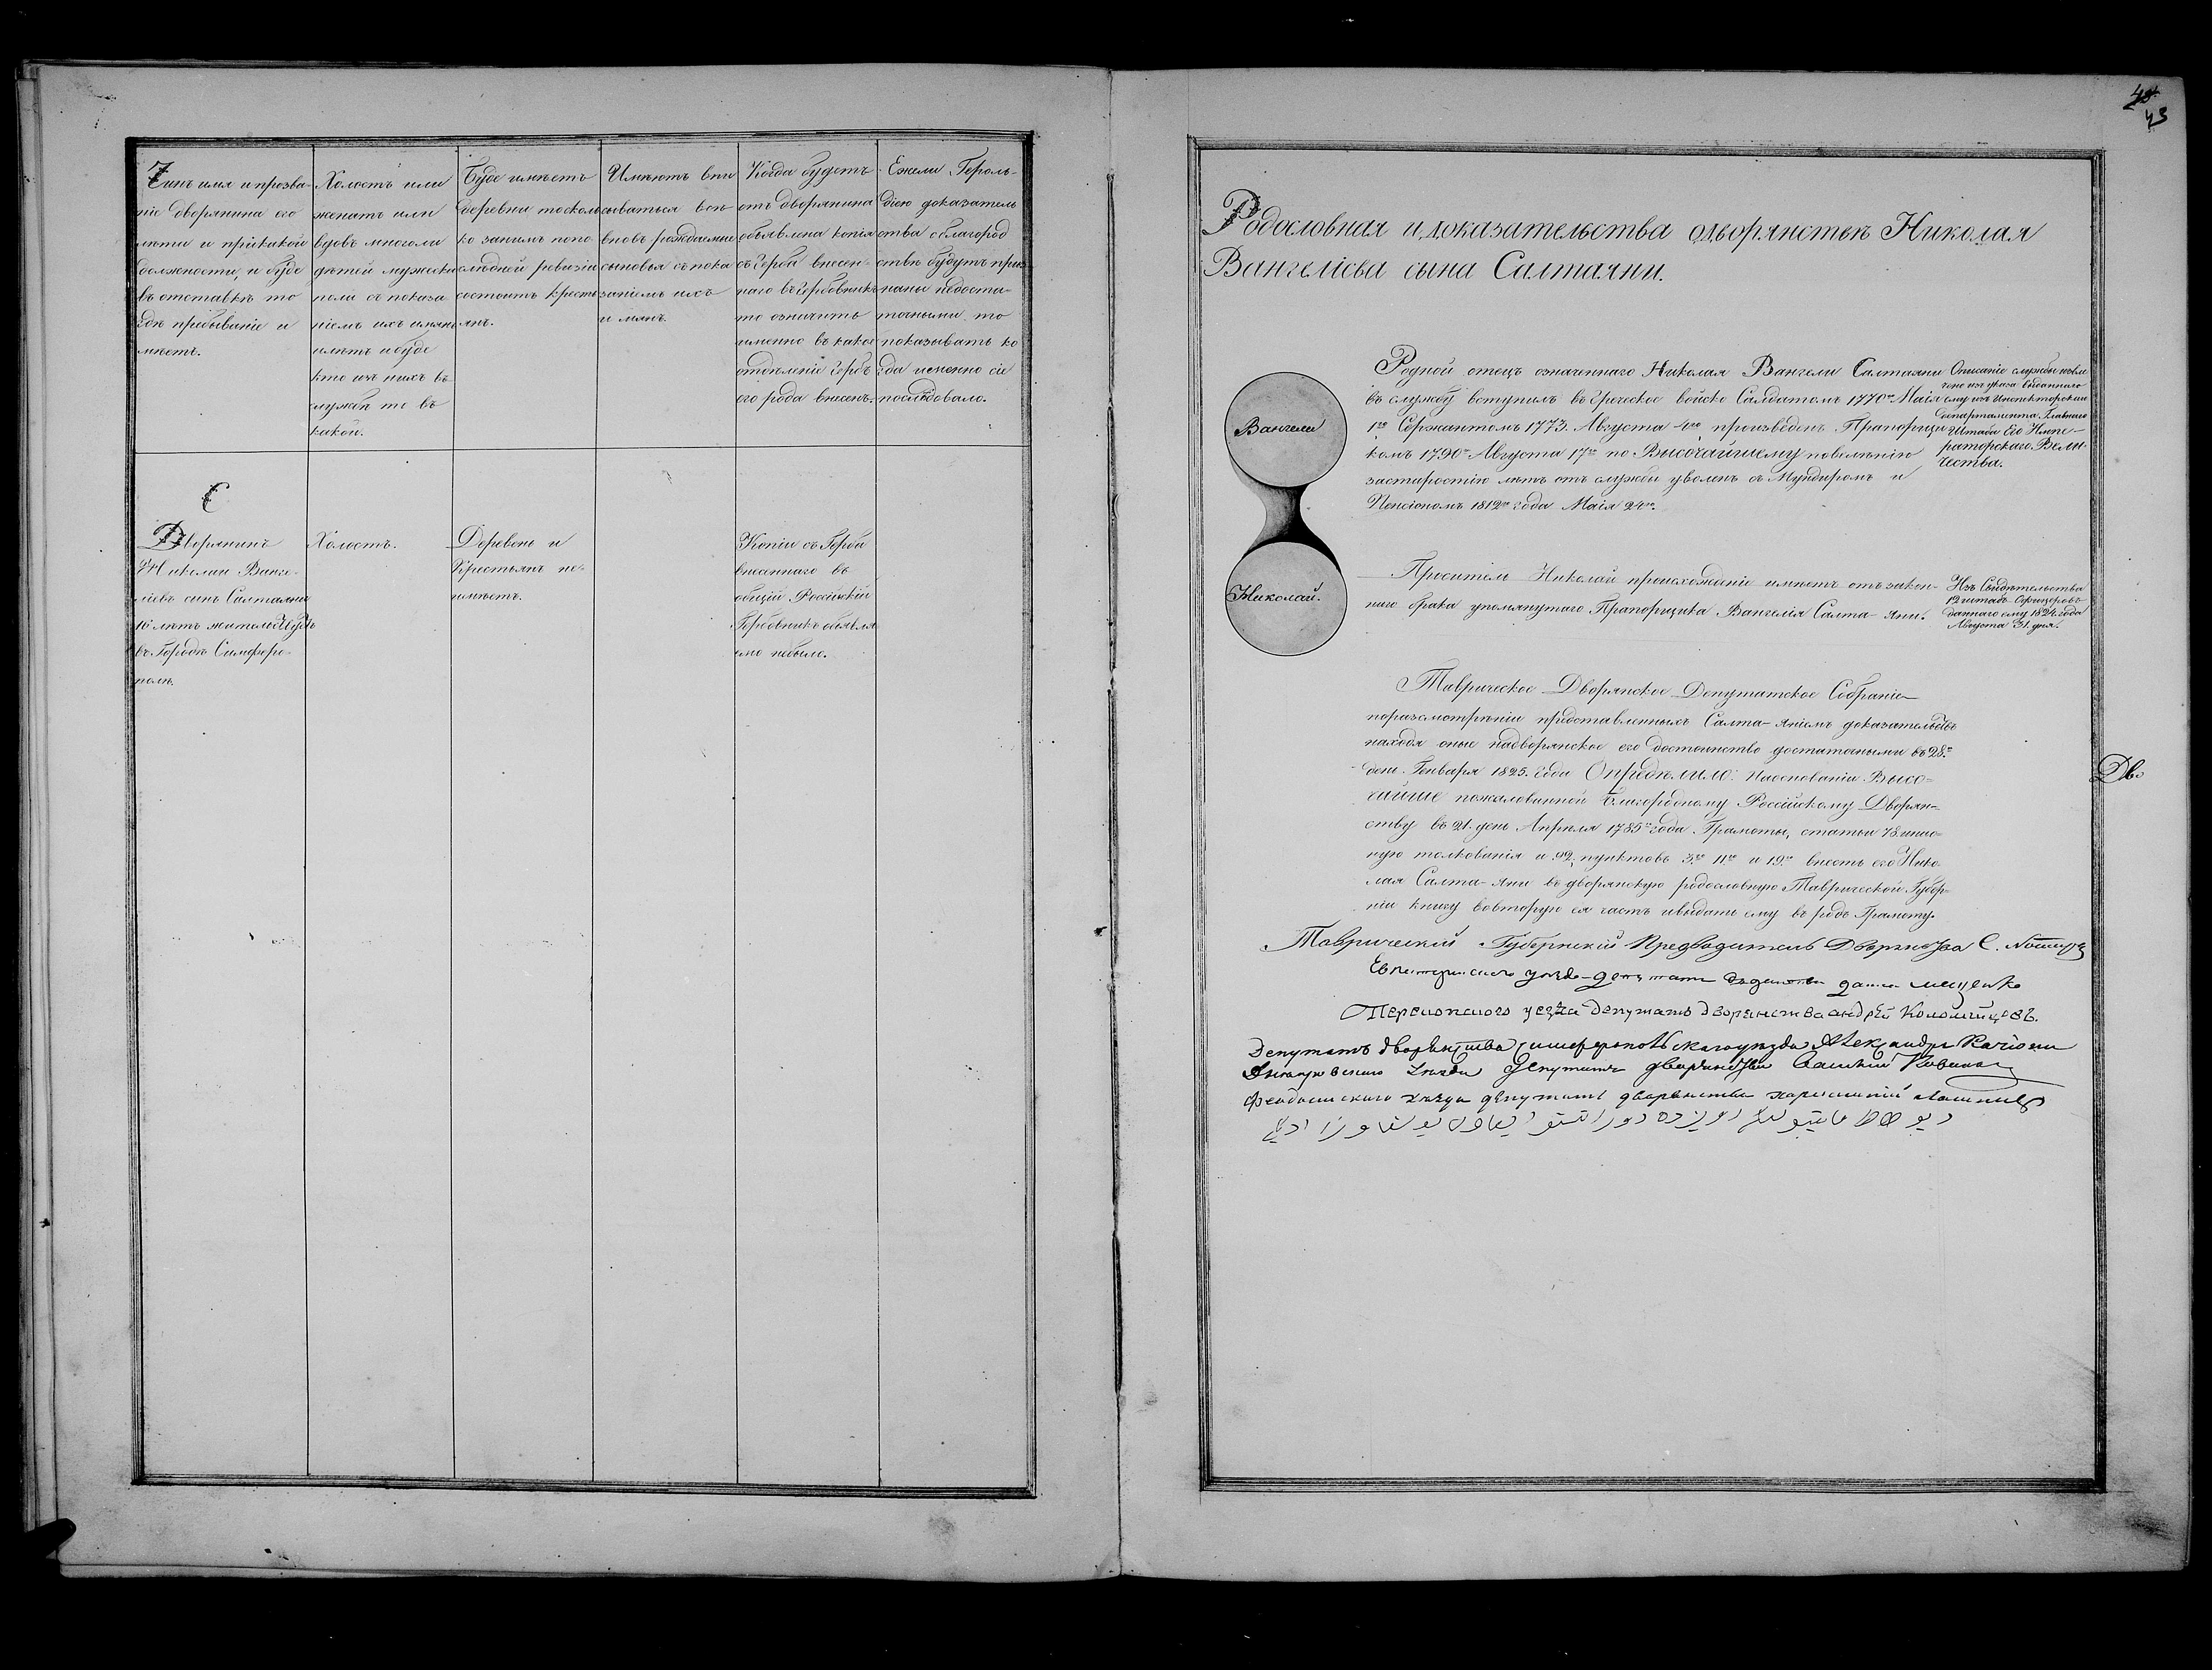 Чинъ имя и прозва-
ніе дворянина его
лѣти и прикакой
должности, и буде
въ отставкѣ то
гдѣ пребываніе и
мѣетъ.
Холостъ или
женатъ или
вдовъ многоли
дѣтей мужеска
пола съ показа
ніемъ ихъ имянъ
илѣтъ и буде
кто изъ нихъ въ
службѣ то въ
какой.
Буде имѣетъ
деревни то сколь
ко занимъ попо
слѣдней ревизіи
состоитъ кресть
янъ.
Имѣютъ впи
сываться всѣ
вновь раждаемые
сыновья съ пока
заніемъ ихъ
имянъ.
Когда будетъ
отъ дворянина
объявлена копія
съ герба внесен-
наго въ гербовникъ
то означить
именно въ какое
отдѣленіе гербъ
его рода внесенъ.
Ежели Героль-
діею доказатель
ства облагород
ствѣ будутъ приз
наны недоста-
точными то
показывать ко
гда именно сіе
послѣдовало.
С
Дворянинъ
Николай Ванге-
ліевъ сынъ Салтаяни
16 лѣтъ
въ Городѣ Симферо-
полѣ.
Холостъ.
Деревень и
Крестьянъ не-
имѣетъ.
Копіи съ Герба
внесеннаго въ
общій Россійскій
Гербовникъ объявле
но небыло.
43
Родословная и доказательства одворянствѣ Николая
Вангеліева сына Салтаяни.
Вангели
Николай.
Родной отецъ означеннаго Николая Вангели Салтаяни
въ службу вступилъ въ Греческое войско Салдатомъ 1770го Маія
1го Сержантомъ 1773. Августа произведенъ Прапорщи
комъ 1790го Августа 17го по Высочайшему повелѣнію
застаростію лѣтъ отъ службы уволенъ съ Мундиромъ и
Пенсіономъ 1812го года Маія 24го.
Описаніе службы извле
чено изъ указа выданнаго
ему изъ Инспекторскаго
Департамента Главнаго
Штаба Его Импе-
раторскаго Вели-
чества.
Проситель Николай происхожденіе имѣетъ отъ закон-
наго брака упомянутаго Прапорщика Вангелія Салта-яни.
Изъ Свидѣтельства
12 штабъ Офицеровъ
даннаго ему 1824 года
Августа 31. дня.
Таврическое Дворянское Депутатское Собраніе
поразсмотрѣніи представленныхъ Салта-яніемъ доказательствъ
находя оные надворянское его достоинство достаточными въ 28е
день Генваря 1825. года Опредѣлило: Наоснованіи Высо-
чайше пожалованной Благородному Россійскому Дворян-
ству въ 21. день Апрѣля 1785го года Грамоты, статьи 78.
толкованія и 92, пунктовъ 3го 11го и 19го внесть его Нико-
лая Салта-яни въ дворянскую родословную Таврической Губер-
ніи книгу вовторую ея часть ивыдать ему въ родъ Грамоту.
Таврическій Губернскій Предводитель Дворянства С.
Перекопского уезда депутатъ дворянства андрей Коломийцевъ.
Депутатъ дворянства симферопольскаго уезда Александръ Качіони
Днепровскаго уезда Депутатъ дворянства Василій
Феодосийскаго уезда депутатъ дворянства
Дв.